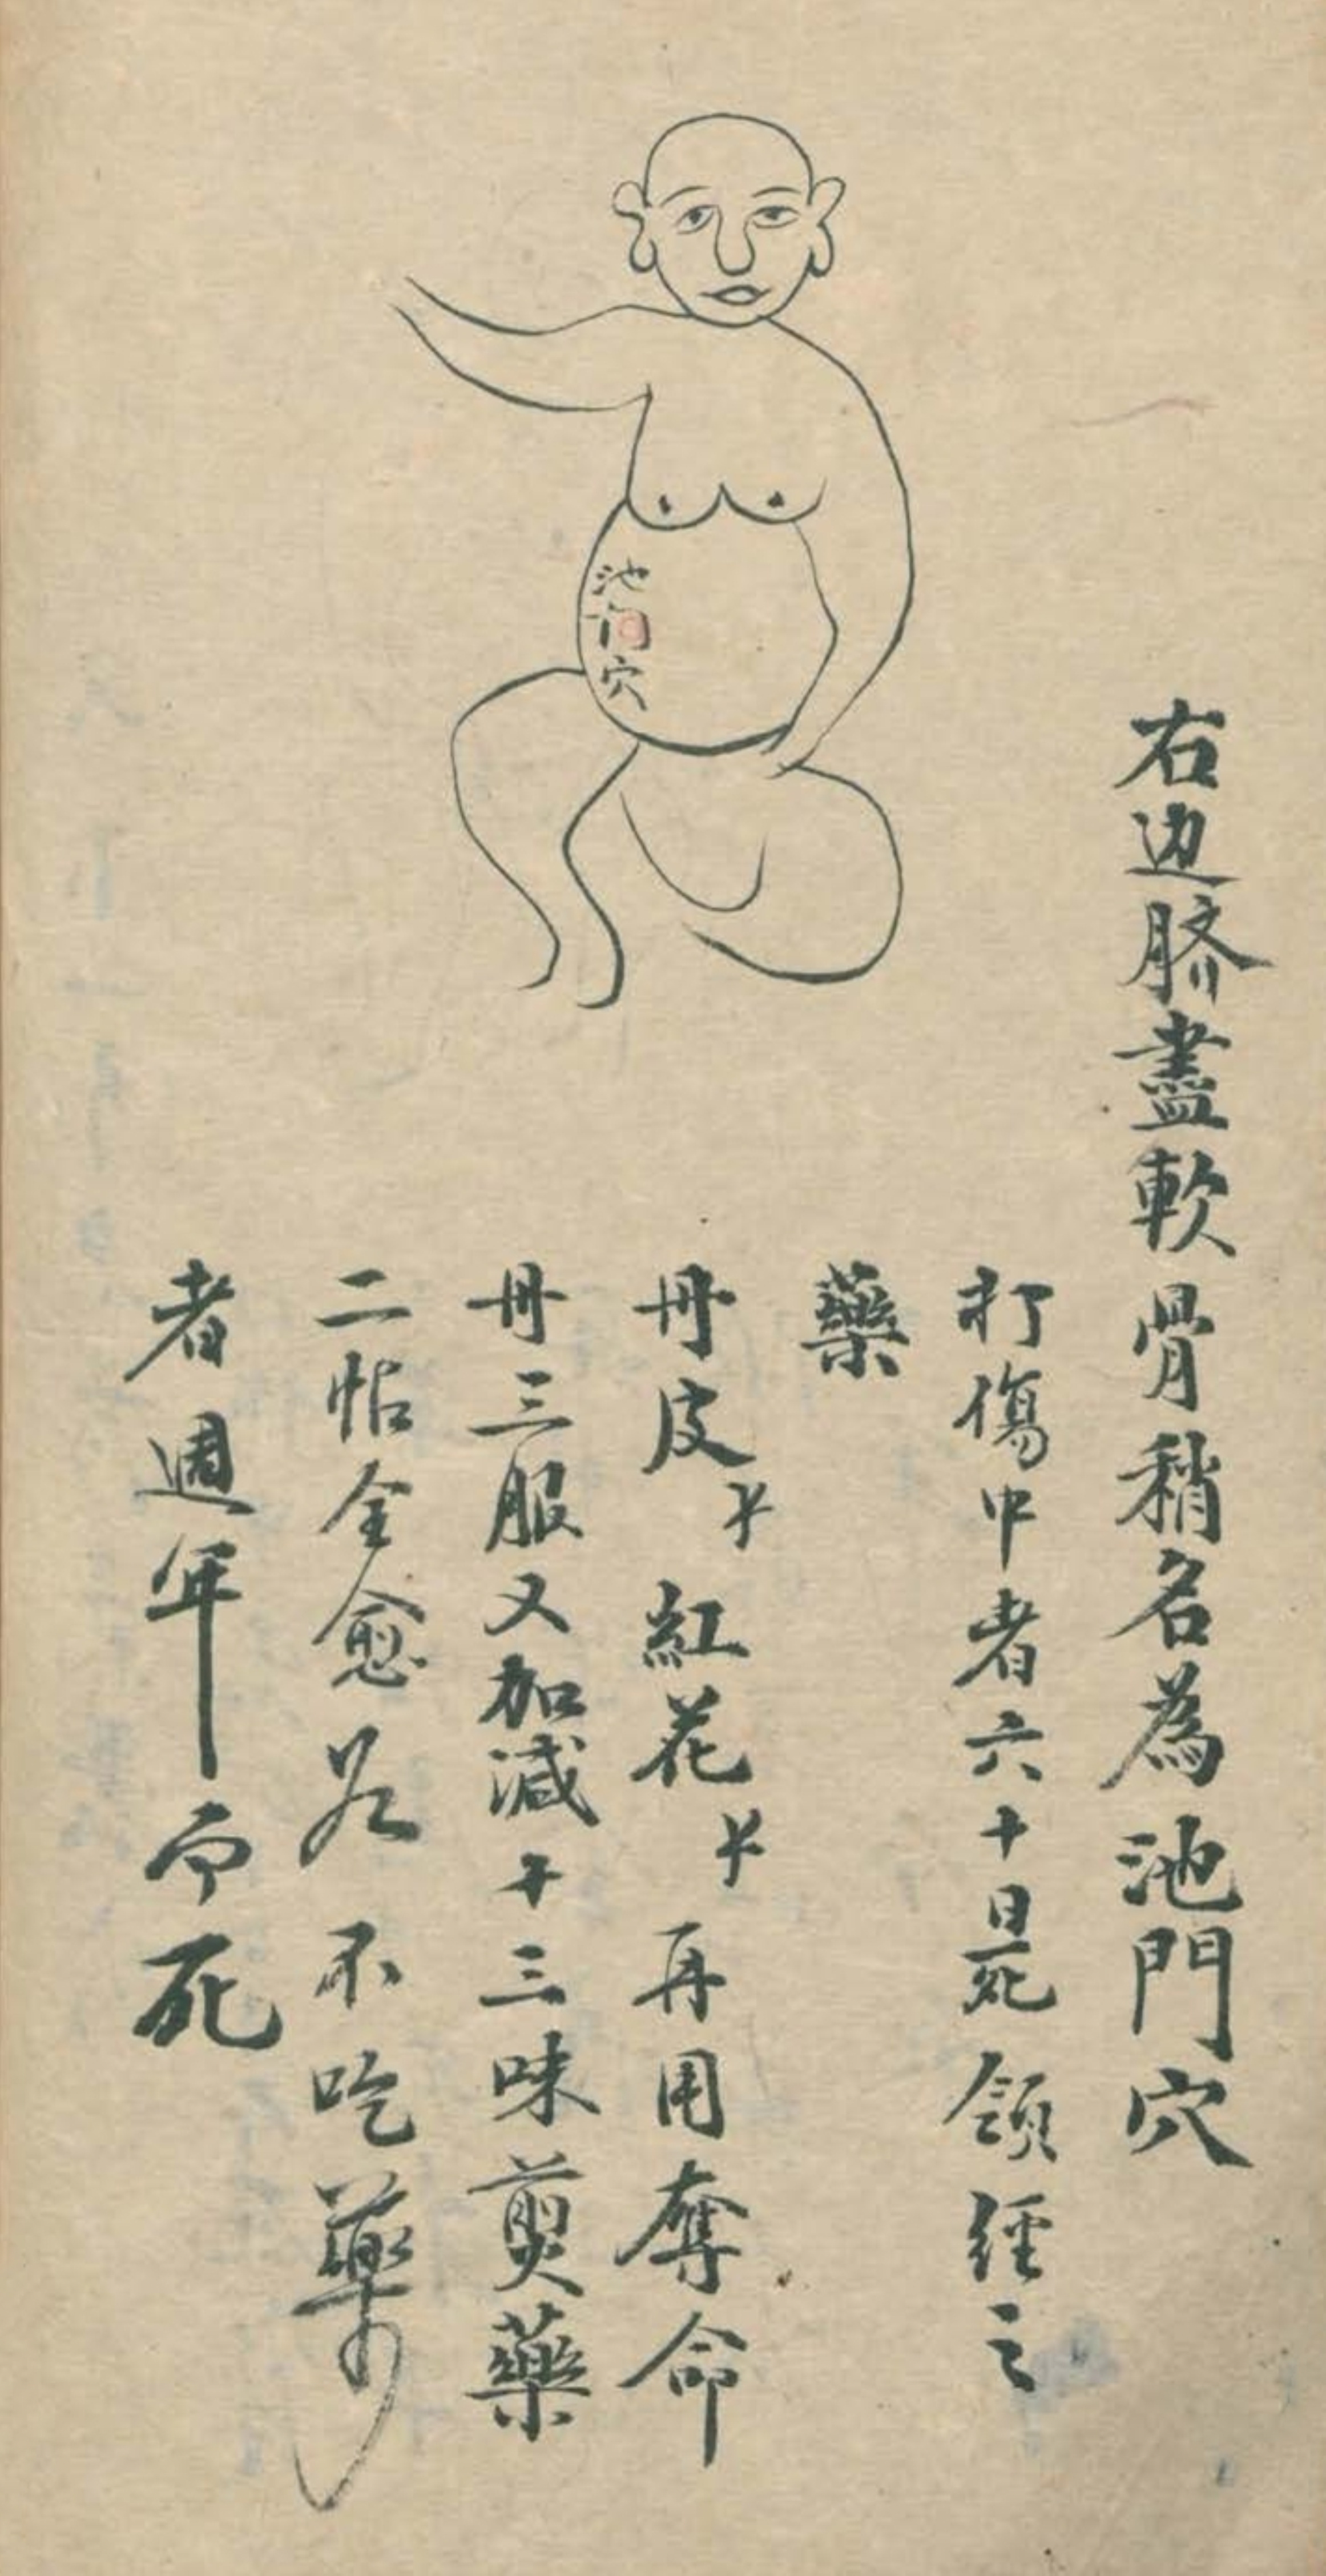 右边脐盡軟骨稍名為池門穴
打傷中者六十日死領經之
藥
丹皮 紅花 再用奪命
丹三服又加減十三味煎藥
二帖全愈若不吃藥
者週年而死
池門穴